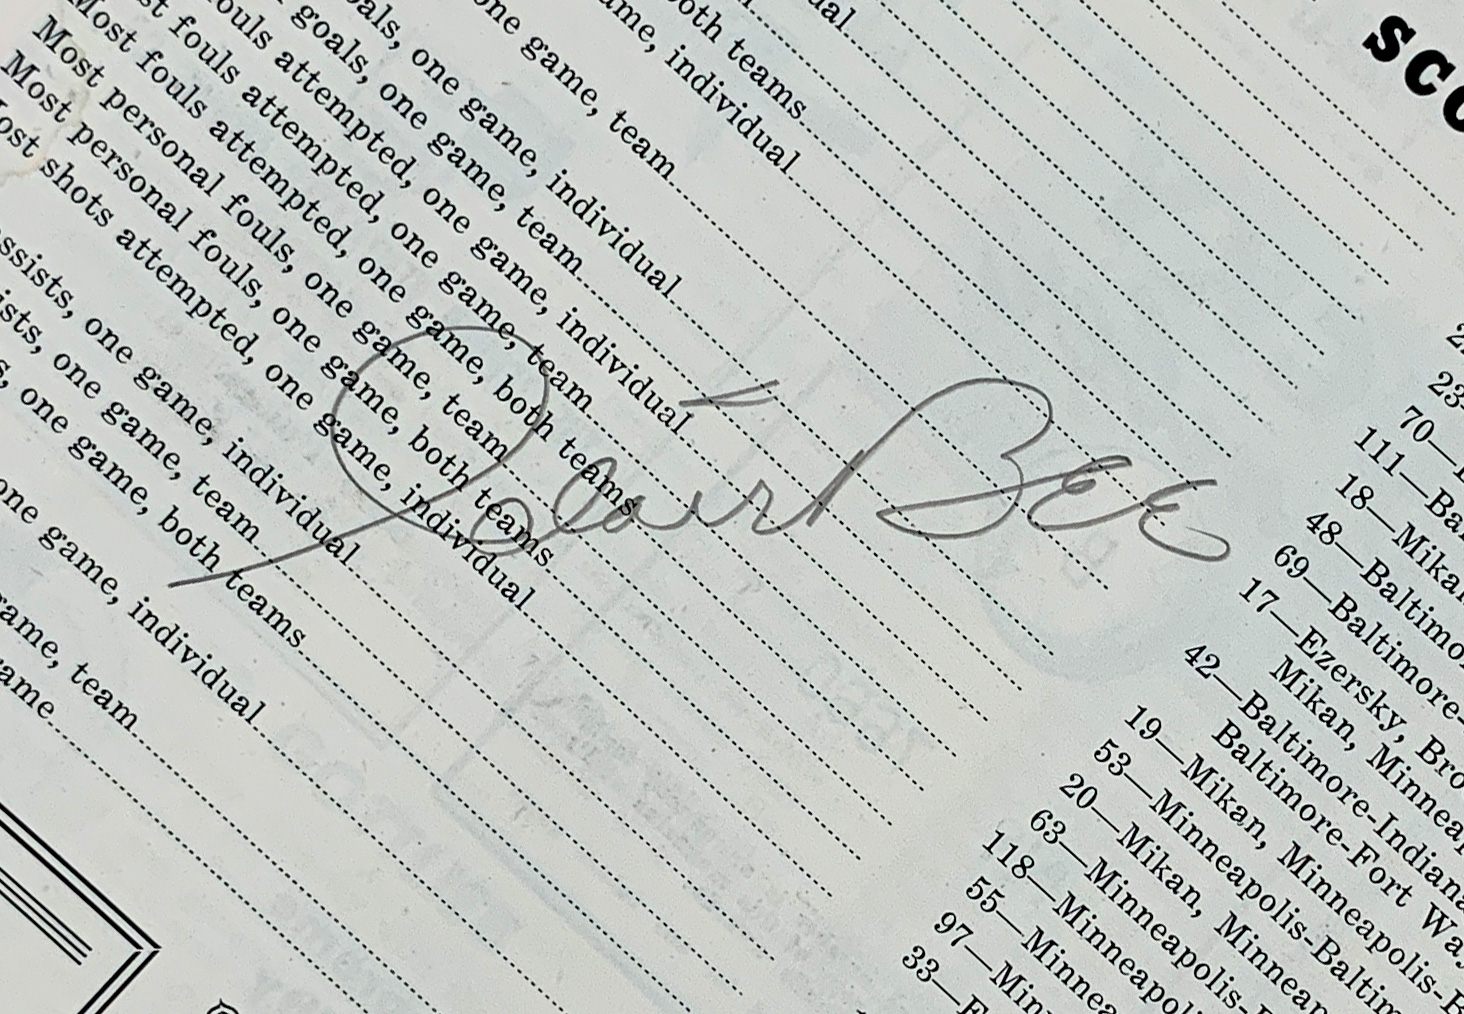 sco
ual
both teams
ame, individual
one game, team
als, one game, individual
goals, one game, team
ouls attempted, one game, individual
st fouls attempted, one game, team
Most fouls attempted, one game, both teams
Most personal fouls, one game, team
Most personal fouls, one game, both teams
ost shots attempted, one game, individual
ssists, one game, individual
ists, one game, team
s, one game, both teams
one game, individual
ame, team
ame
Clair Bee
23
70—
111—Ba
18—Mika
48—Baltimo
69—Baltimore-
17—Ezersky, Bro
Mikan, Minnea
42—Baltimore-Indiana
Baltimore-Fort Wa
19—Mikan, Minneapolis-B
53—Minneapolis-Baltim
20—Mikan, Minneap
63—Minneapolis-
118—Minneapol
55—Minnea
97—Min
33—F